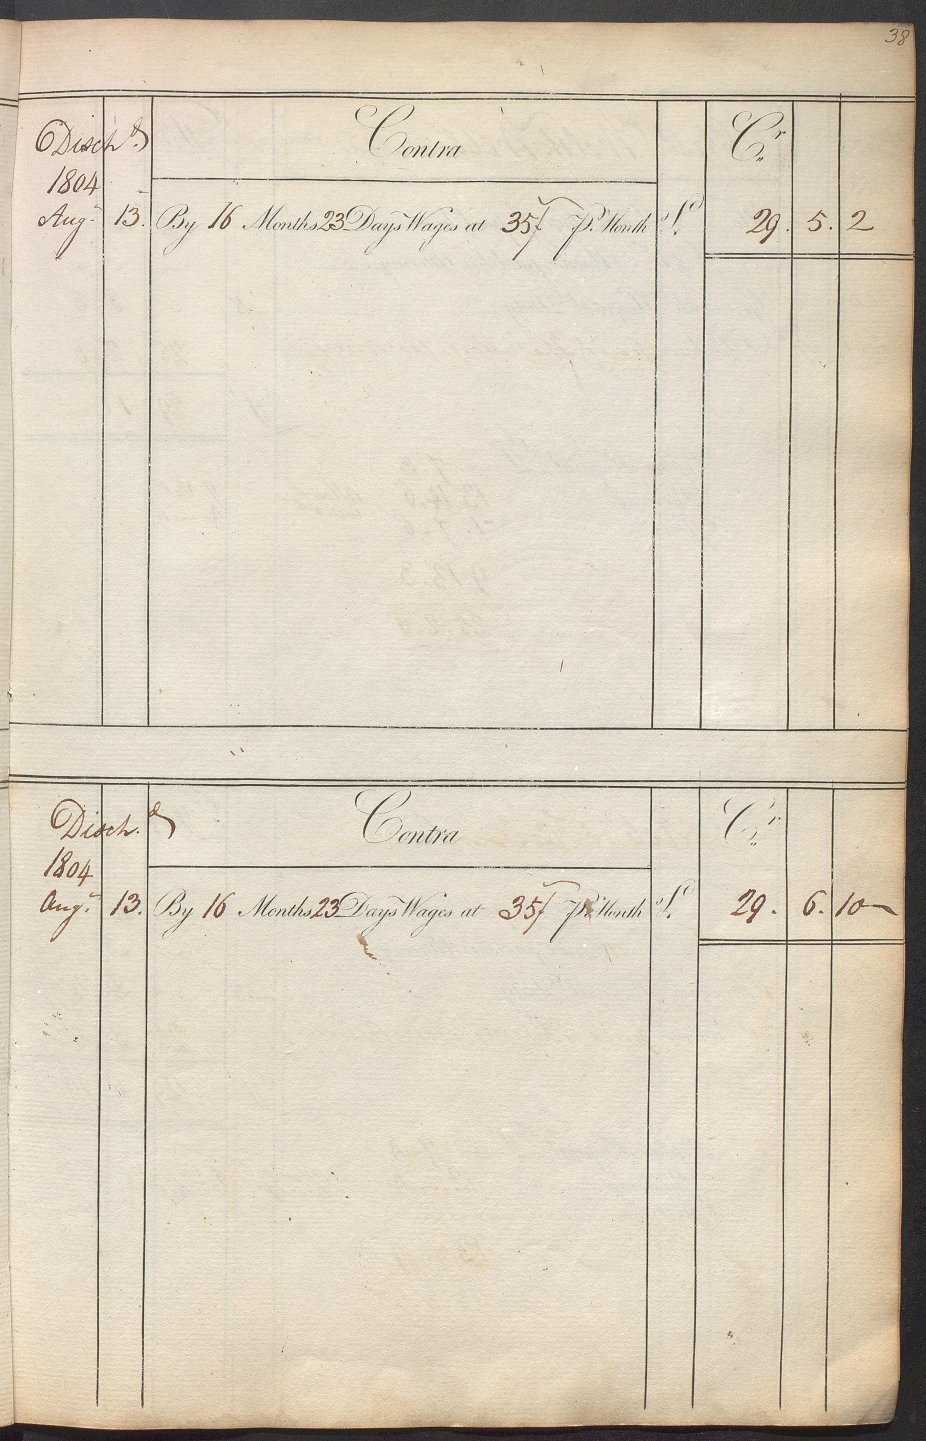 38
Disch.d Contra Cr.
1804
Augt 13. By 16 Months 23 Days Wages at 35/ Pr. Month £. 29. 5. 2
Disch.d Contra Cr.
1804
Augt 13. By 16 Months 23 Days Wages at 35/ Pr. Month £. 29. 6. 10